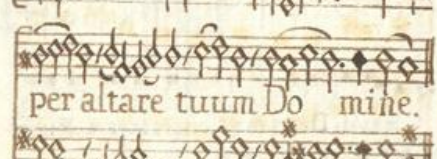 per altare tuum Do mine.